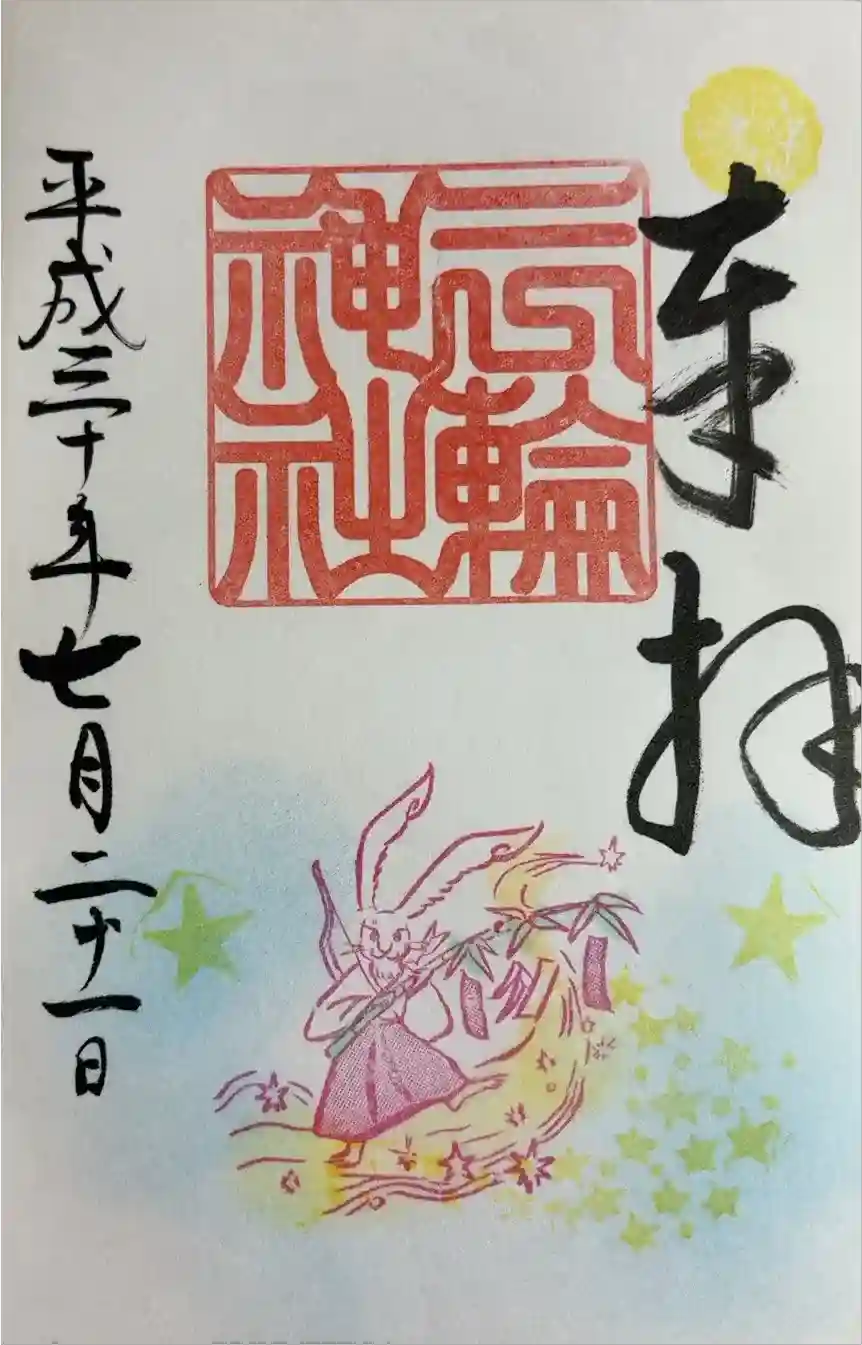 奉拝
三輪
神社
平成三十年七月二十一日